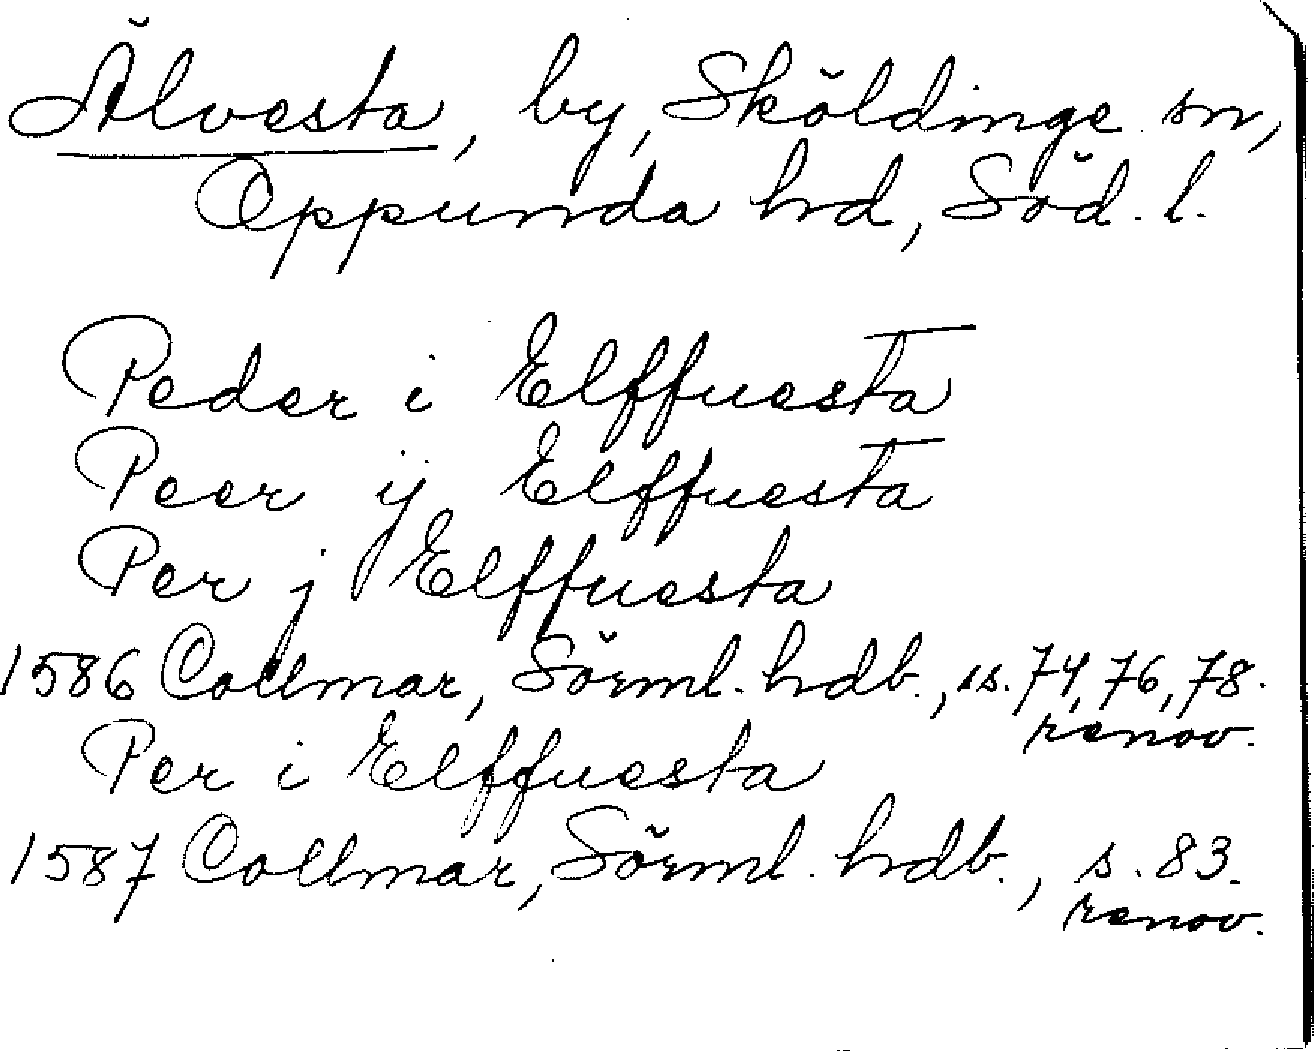 Älvesta, by, Sköldinge sn,
Oppunda hd, Söd. l.
Peder i Elffuesta
Peer ij Elffuesta
Per j Elffuesta
1586 Collmar, Sörml. hdb., ss. 74, 76, 78.
renov.
Per i Elffuesta
1587 Collmar, Sörml. hdb., s. 83.
renov.